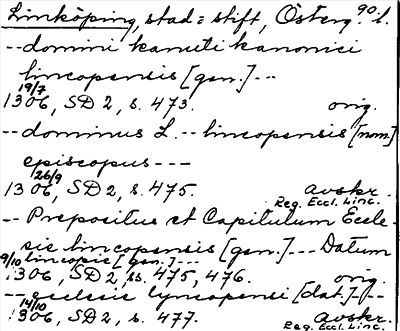 Linköping, stad = stift, Österg. 90 l.
-- domini kanuti kanonici
lincopensis [gen.] ---
19/7
1306, SD 2, s. 473. orig.
-- dominus L. -- lincopensis [nom.]
episcopus ---
26/9
1306, SD 2, s. 475. avskr.
Reg. Eccl. Linc.
-- Prepositus et Capitulum Eccle-
sie lincopensis [gen.] --- Datum
9/10 lincopie [gen.] ---
1306, SD 2, ss. 475, 476. orig.
-- ecclesie lyncopensi [dat.] --
14/10
1306, SD 2, s. 477. avskr.
Reg. Eccl. Linc.